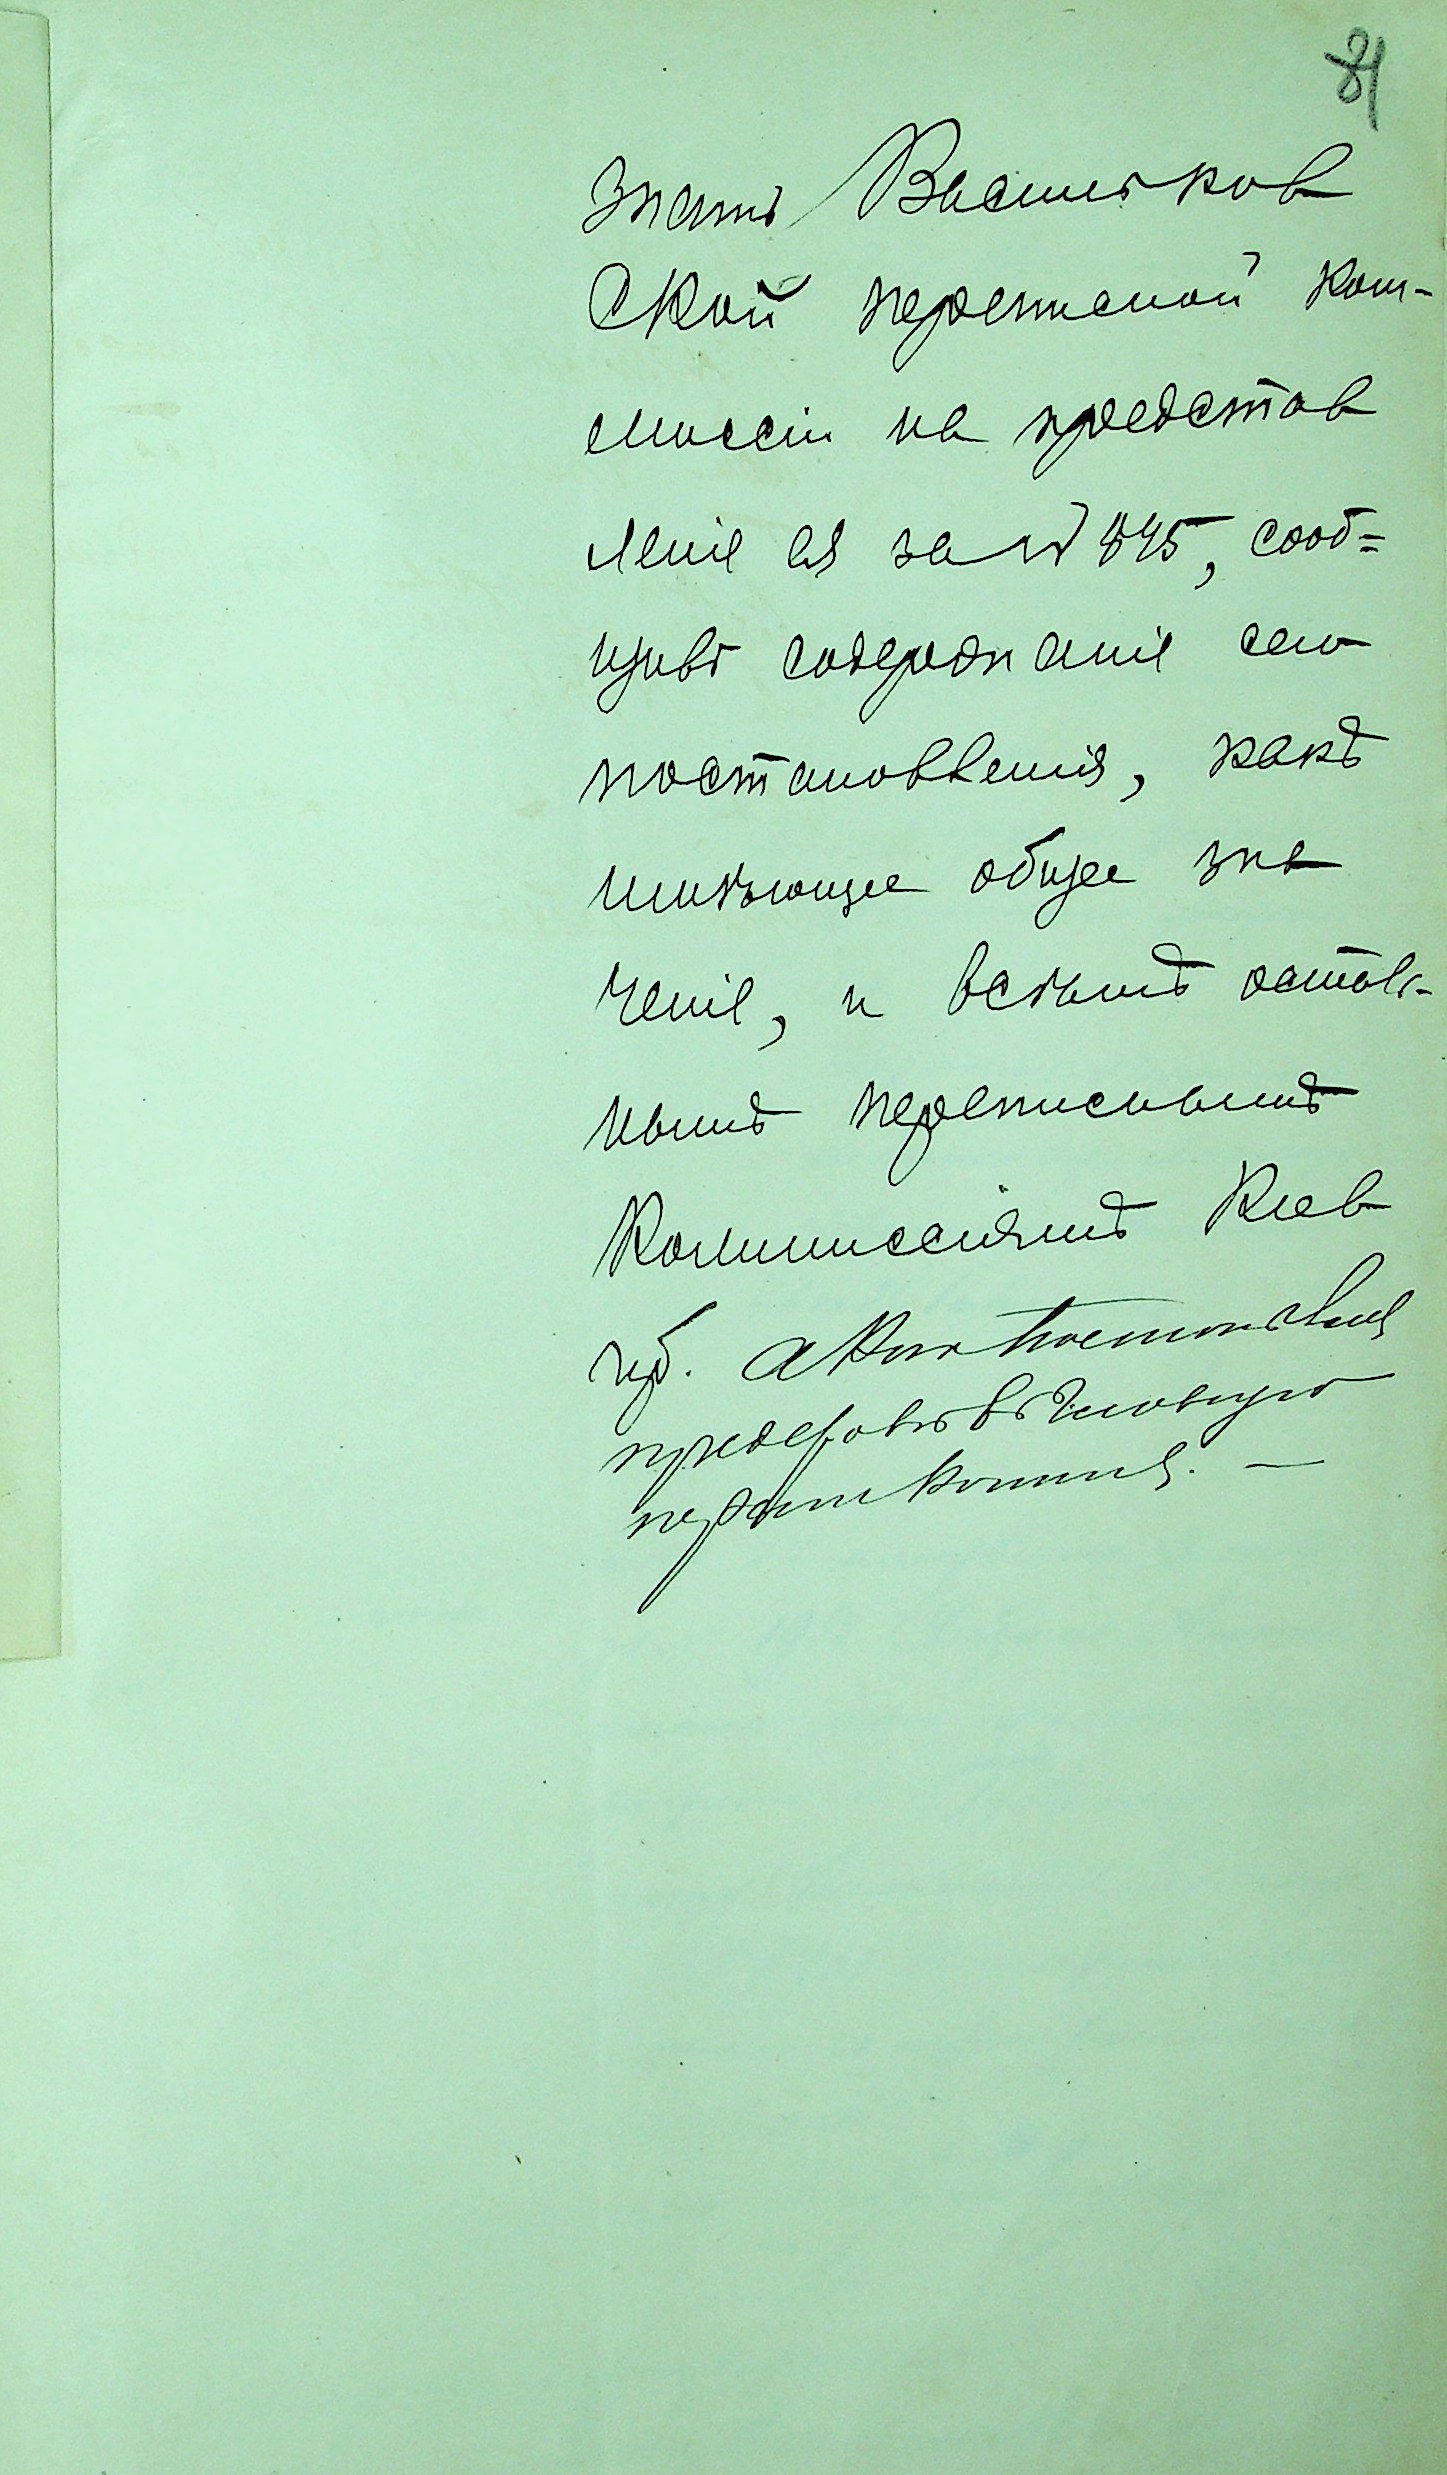 81
знать Васильков
ской переписной ком-
миссіи на представ
леніе ея за № 845, сооб=
щивъ содержаніе сего
постановленія, какъ
имѣющее общее зна
ченіе, и всѣмъ осталь-
нымъ переписнымъ
Коммиссіямъ Кіев
губ. а Постановленія
въ Главную